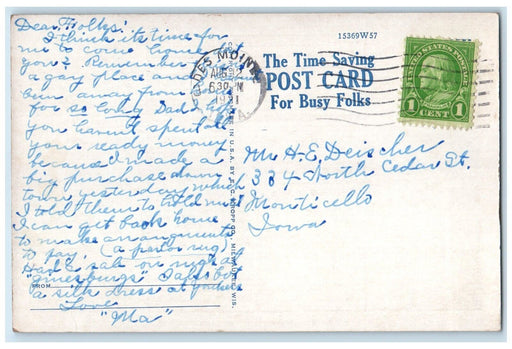 Dear Folks!
I think its time for
me to come home
you? Remember
a gay place and
been away from
for so long. Dad I
you havn't spent
your ready money
because I made a
big purchase down
town yesterday which
I told them to hold until
I can get back home
to make arrangements
to pay. (a pair rug)
Had a sale on rugs at
"Ginsburgs"
a silk dress at Yonkers
Love
"Ma"
FROM
15369W57
The Time Saving
POST CARD
For Busy Folks
DES MOINES
AUG
630 PM
UNITED STATES POSTAGE
1 CENT 1
MADE IN U.S.A. BY E.C. KROPP CO., MILWAUKEE, WIS.
Mr H.E. Deischer
334 North Cedar St.
Monticello
Iowa